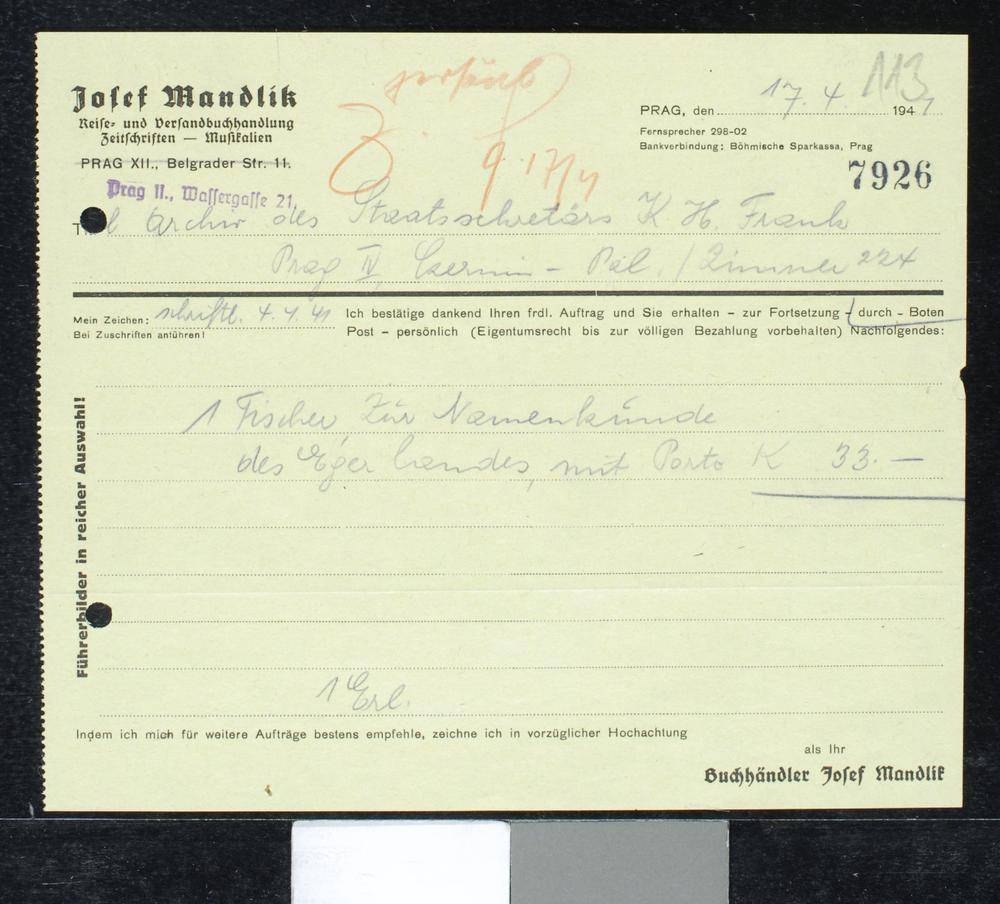 Josef Mandlik
Reise- und Versandbuchhandlung
Zeitschriften — Musikalien
PRAG XII., Belgrader Str. 11.
Prag II., Wassergasse 21.
persönl.
9. 17/4
113
PRAG, den 17. 4. 1941
Fernsprecher 298-02
Bankverbindung: Böhmische Sparkassa, Prag
7926
Archiv des Staatssekretärs K H. Frank
Prag IV, Czernin - Pal. / Zimmer 224
Mein Zeichen: schriftl. 4. 4. 41
Bei Zuschriften anführen!
Ich bestätige dankend Ihren frdl. Auftrag und Sie erhalten – zur Fortsetzung – durch - Boten
Post – persönlich (Eigentumsrecht bis zur völligen Bezahlung vorbehalten) Nachfolgendes:
1 Fischer, Zür Namenkunde
des Egerlandes, mit Porto K 33.—
Führerbilder in reicher Auswahl!
1 Erl.
Indem ich mich für weitere Aufträge bestens empfehle, zeichne ich in vorzüglicher Hochachtung
als Ihr
Buchhändler Josef Mandlik